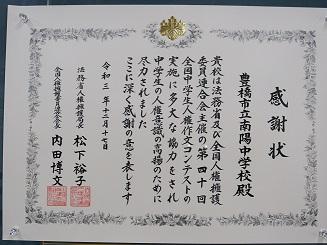 感謝状
豊橋市立南陽中学校殿
貴校は法務省及び全国人権擁護
委員連合会主催の第四十回
全国中学生人権作文コンテストの
実施に多大な協力をされ
中学生の人権意識の高揚のために
尽力されました
ここに深く感謝の意を表します
令和三年十二月十七日
法務省人権擁護局長 松下裕子
全国人権擁護委員連合会長 内田博文